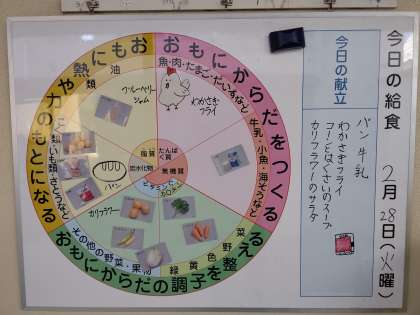 今日の給食
2月28日(火曜)
今日の献立
パン 牛乳
わかさぎフライ
コーンとはくさいのスープ
カリフラワーのサラダ
おもにからだをつくる
魚・肉・たまご・だいずなど
牛乳・小魚・海そうなど
わかさぎ
フライ
おもに
熱や力のもとになる
油類
ブルーベリー
ジャム
いも類・さとうなど
パン
おもにからだの調子を整える
緑黄色野菜
その他の野菜・果物
カリフラワー
脂質
たんぱく質
炭水化物
無機質
ビタミン